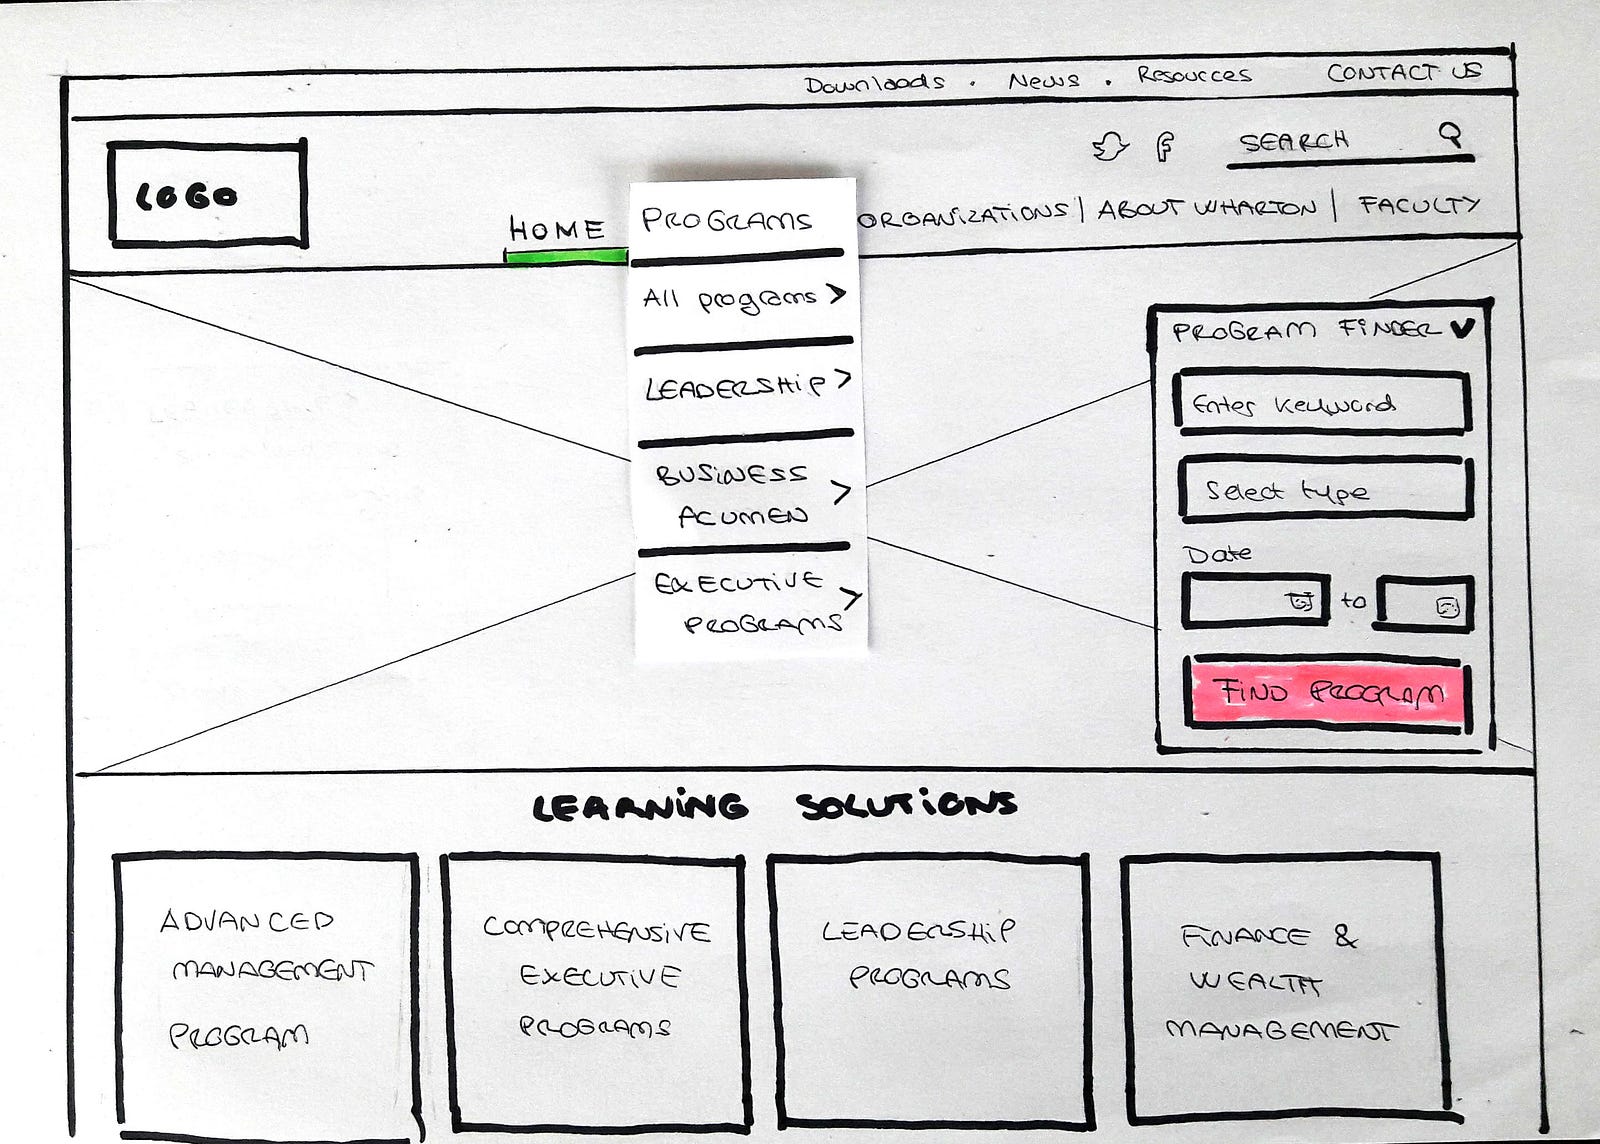 Downloads . News . Resources CONTACT US
SEARCH
LOGO
HOME PROGRAMS ORGANIZATIONS | ABOUT WHARTON | FACULTY
All programs >
LEADERSHIP >
BUSINESS
ACUMEN >
EXECUTIVE
PROGRAMS >
PROGRAM FINDER
Enter keyword
Select type
Date
to
FIND PROGRAM
LEARNING SOLUTIONS
ADVANCED
MANAGEMENT
PROGRAM
COMPREHENSIVE
EXECUTIVE
PROGRAMS
LEADERSHIP
PROGRAMS
FINANCE &
WEALTH
MANAGEMENT